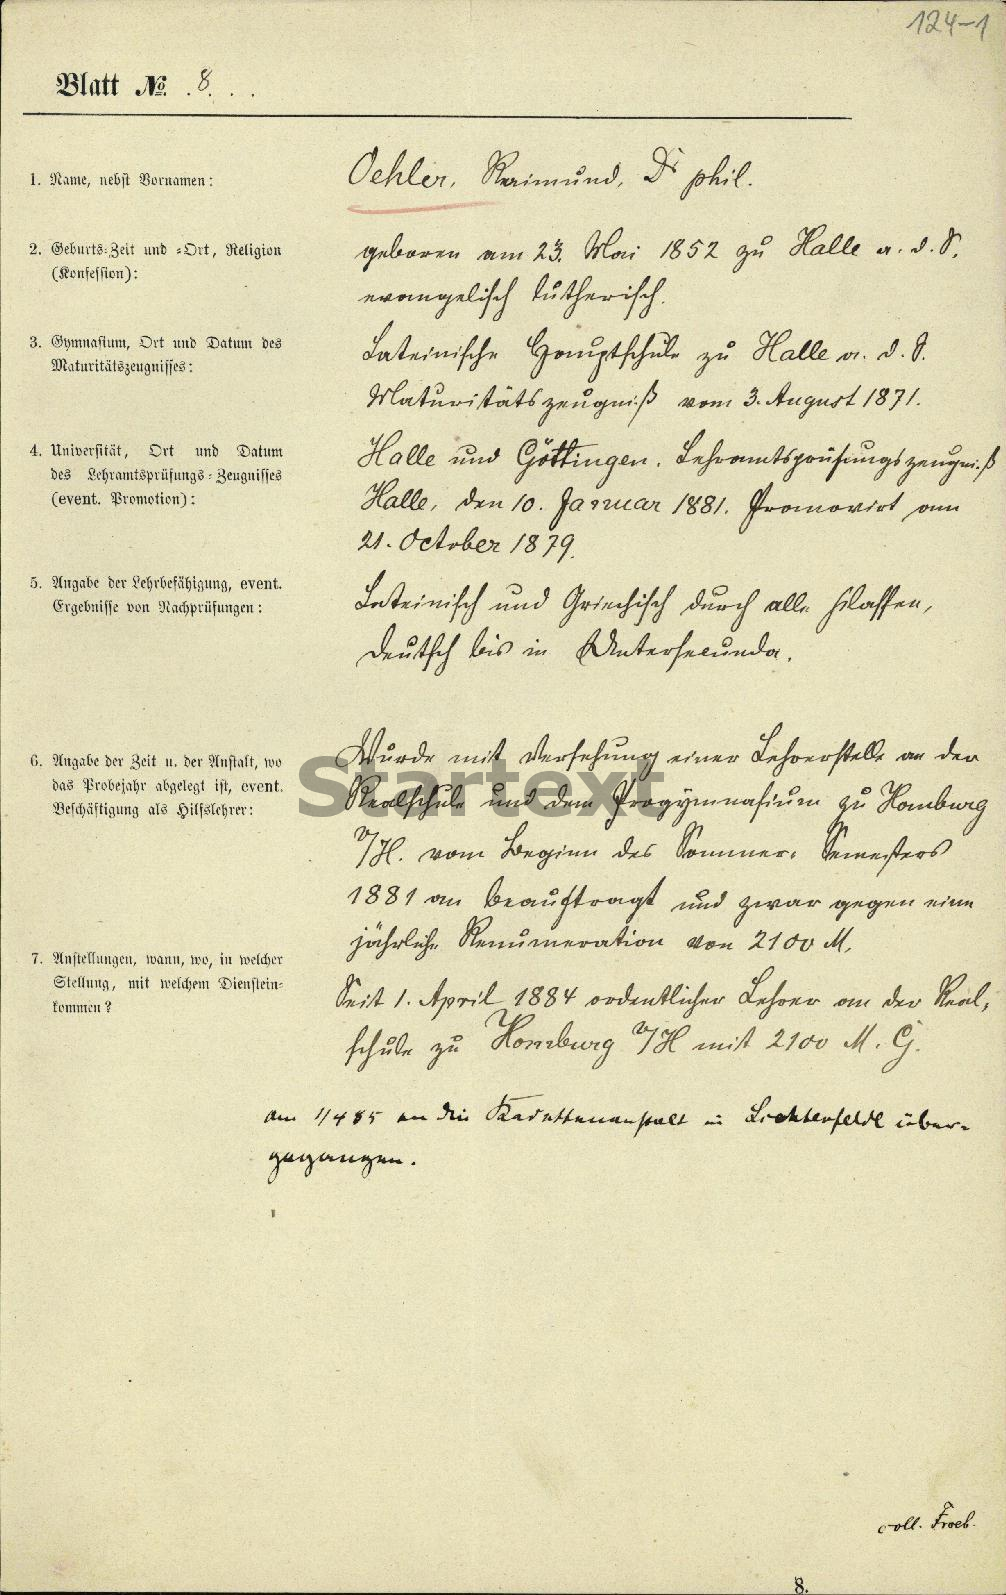 124-1
Blatt No. 8. . .
1. Name, nebst Vornamen:
Oehler, Raimund, Dr phil.
2. Geburts-Zeit und -Ort, Religion
(Konfession):
geboren am 23. Mai 1852 zu Halle a. d. S.
evangelisch lutherisch.
3. Gymnasium, Ort und Datum des
Maturitätszeugnisses:
Lateinische Hauptschule zu Halle a. d. S.
Maturitätszeugniß vom 3. August 1871.
4. Universität, Ort und Datum
des Lehramtsprüfungs-Zeugnisses
(event. Promotion):
Halle und Göttingen. Lehramtsprüfungszeugniß
Halle, den 10. Januar 1881. Promovirt am
21. October 1879.
5. Angabe der Lehrbefähigung, event.
Ergebnisse von Nachprüfungen:
Lateinisch und Griechisch durch alle Klassen,
Deutsch bis in Untersecunda.
6. Angabe der Zeit u. der Anstalt, wo
das Probejahr abgelegt ist, event.
Beschäftigung als Hilfslehrer:
Wurde mit Versehung einer Lehrerstelle an der
Realschule und dem Progymnasium zu Homburg
v/H. vom Beginn des Sommer-Semesters
1881 an beauftragt und zwar gegen eine
jährliche Renumeration von 2100 M.
7. Anstellungen, wann, wo, in welcher
Stellung, mit welchem Dienstein-
kommen?
Seit 1. April 1884 ordentlicher Lehrer an der Real-
schule zu Homburg v/H mit 2100 M. G.
am 1/4 85 an die Kadettenanstalt in Lichterfelde über-
gegangen.
Startext
coll. Froeb.
8.